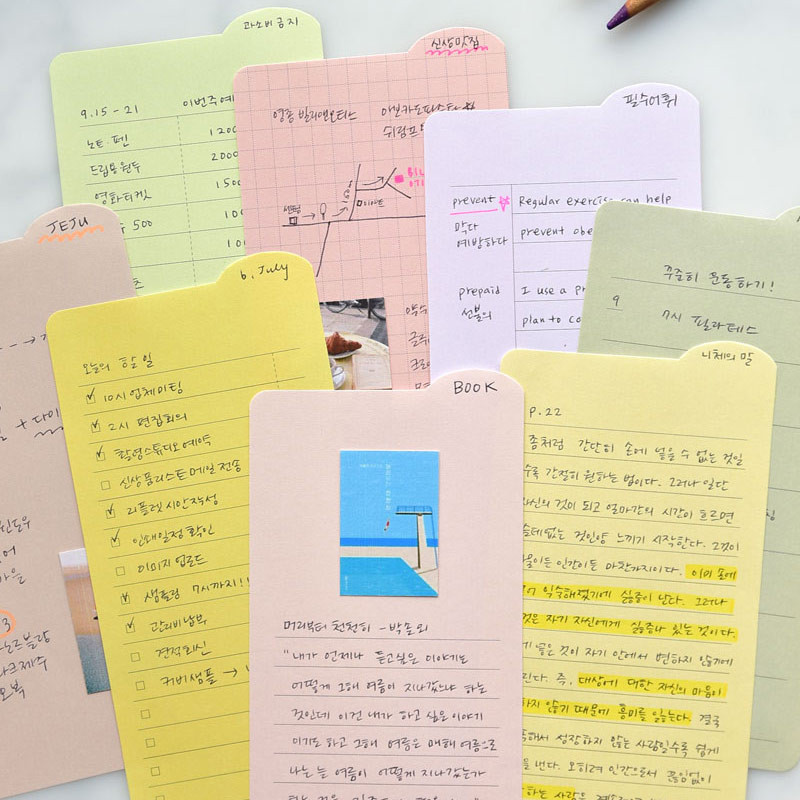 과소비 금지
9.15 - 21
이번주 예
노트·펜
1200
드립용 원두
2000
영화티켓
1500
500
100
10
신상맛집
영종
아보카도
쉬림프
160m
필수어휘
prevent
Regular exercise can help
막다
예방하다
prevent obe
prepaid
I use a pr
선불의
plan to co
꾸준히 운동하기!
9
7시 필라테스
JEJU
6. July
오늘의 할 일
10시 업체미팅
2시 편집회의
촬영스튜디오 예약
신상품리스트 메일 전송
리플렛 시안 작성
인쇄일정 확인
이미지 업로드
샘플링 7시까지!!
관리비 납부
견적회신
커버샘플 →
BOOK
머리부터 천천히 - 박솔뫼
"내가 언제나 듣고싶은 이야기는
어떻게 그해 여름이 지나갔느냐 하는
것인데 이건 내가 하고 싶은 이야기
이기도 하고 그해 여름은 매해 여름으로
나는 늘 여름이 어떻게 지나갔는가
니체의 말
p. 22
좀처럼 간단히 손에 넣을 수 없는 것일
수록 간절히 원하는 법이다. 그러나 일단
자신의 것이 되고 얼마간의 시간이 흐르면
쓸데없는 것인양 느끼기 시작한다. 그것이
물이든 인간이든 마찬가지이다. 이미 손에
어 익숙해졌기에 싫증이 난다. 그러나
것은 자기 자신에게 싫증나 있는 것이다.
에 넣은 것이 자기 안에서 변하지 않기에
린다. 즉, 대상에 대한 자신의 마음이
하지 않기 때문에 흥미를 잃는다. 결국
해서 성장하지 않는 사람일수록 쉽게
을 낸다. 오히려 인간으로서 끊임없이
하는 사람은